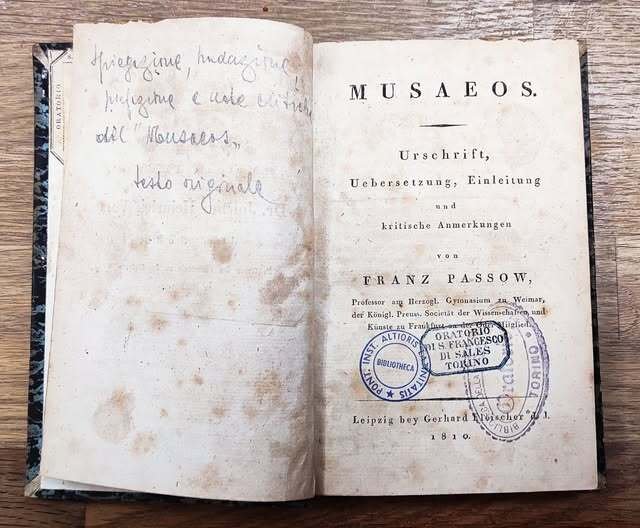 ORATORIO
prefazione e note critiche
del "Musaeos„
testo originale
MUSAEOS.
Urschrift,
Uebersetzung, Einleitung
und
kritische Anmerkungen
von
FRANZ PASSOW,
Professor am Herzogl. Gymnasium zu Weimar,
der Königl. Preuss. Societät der Wissenschaften und
Künste zu Frankfurt an der Oder Mitglied.
PONT. INST. ALTIORIS LATINITATIS
BIBLIOTHECA
ORATORIO
DI S. FRANCESCO
DI SALES
TORINO
TORINO
Leipzig bey Gerhard Fleischer d. J.
1810.